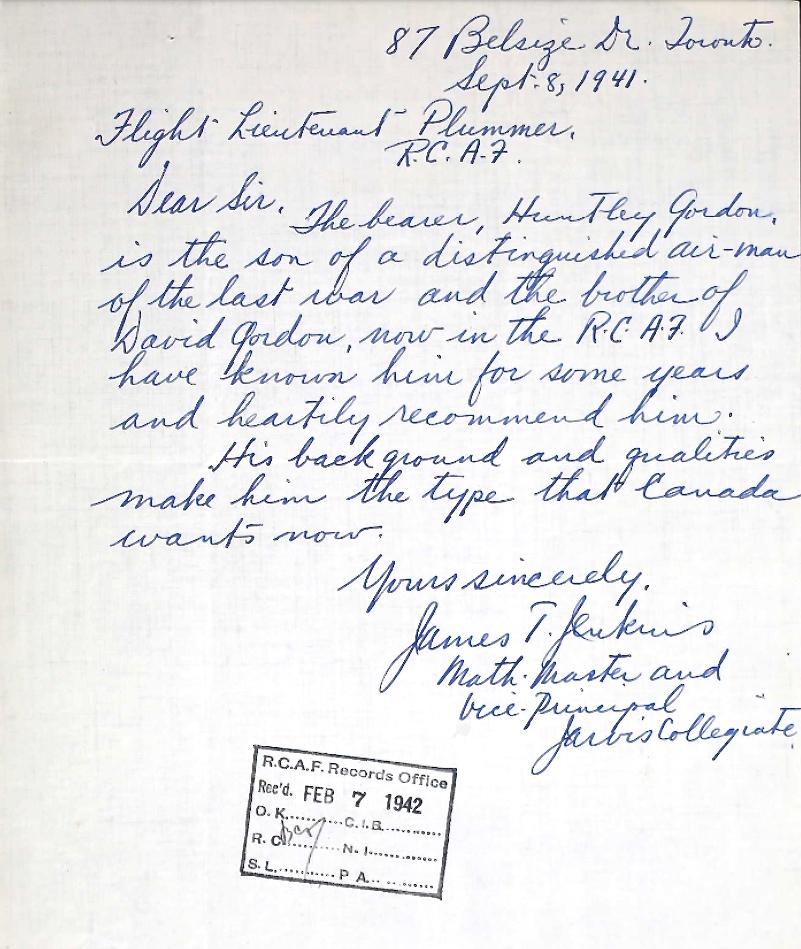 87 Belsize Dr. Toronto.
Sept. 8, 1941.
Flight Lieutenant Plummer.
R.C.A.F.
Dear Sir.
The bearer, Huntley Gordon,
is the son of a distinguished air-man
of the last war and the brother of
David Gordon, now in the R.C.A.F. I
have known him for some years
and heartily recommend him.
His background and qualities
make him the type that Canada
wants now.
Yours sincerely,
James T. Jenkins
Math. Master and
Vice-Principal
Jarvis Collegiate.
R.C.A.F. Records Office
Rec'd. FEB 7 1942
O. K. .......... C.I.B. ..........
R. C. .......... N. I. ..........
S. L. .......... P A. ..........